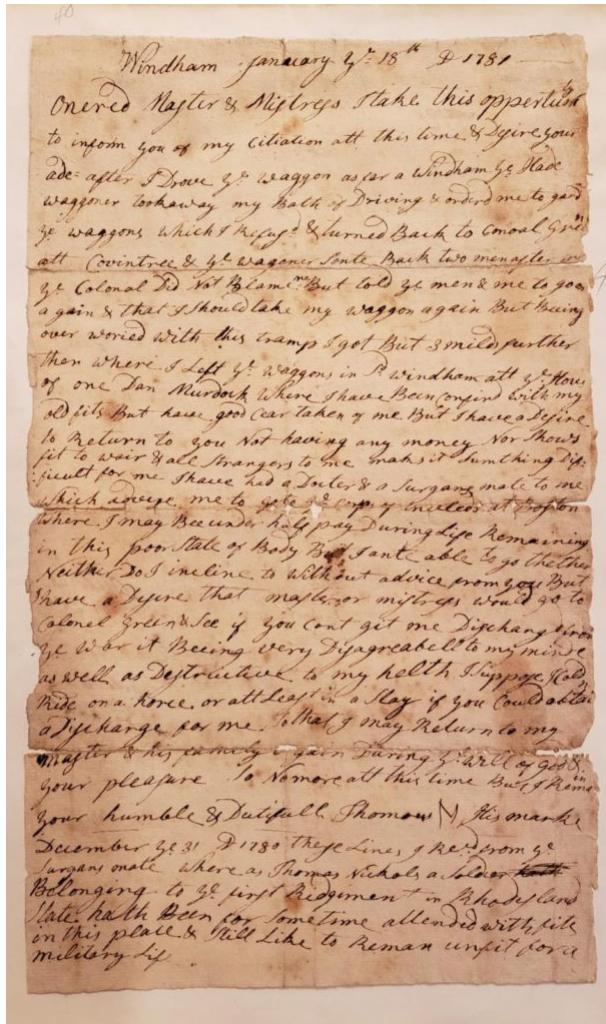 40
Windham January Ye 18th D 1781
Onered Master & Mistress I take this oppertunity
to inform you of my Citiation att this time & Desire your
ade= after I Drove ye waggon as far a Windham ye Hade
waggoner took away my Batk of Driving & orderd me to gard
ye waggons which I Refusd & turned Back to Conoal
att Covintree & ye wagoner Sente Back two men after me
ye Colonal Did Not Blame me But told ye men & me to goo
a gain & that I Should take my waggon again But Beeing
over woried with this tramp I got But 3 mild further
then where I Left ye waggons in Sd windham att ye Hous
of one Dan Murdock where I have Been Confind with my
old fits But have good Cear taken of me But I have a Desire
to Return to you Not having any money Nor Shows
fit to wair & all Strangers to me maks it Sumthing Dif=
ficult for me I have had a Docter & a Surgans mate to me
which advise me to goto ye Corps of Invleds at Boston
where I may Bee under half pay During Life Remaining
in this poor State of Body But I ant able to go thether
Neither Do I incline to without advice from you But
I have a Desire that master or mistress would go to
Colonel Green & See if you Cant git me Discharg from
ye War it Beeing very Disagreabell to my minde
as well as Destructive to my helth I Suppose I Could
Ride on a horce or att Least in a Slay if you Could obtain
a Discharge for me So that I may Return to my
master & his family again During ye will of god &
your pleasure So No more att this time But I Remain
your humble & Dutifull Thomous N His marke
December ye 31 D 1780 these Lines I Recd from ye
Surgans mate where as Thomas Nichols a Soldor
Belonging to ye first Ridgiment in Rhodisland
State hath Been for Sometime attended with fits
in this place & Still Like to Reman unfit for a
military Lif